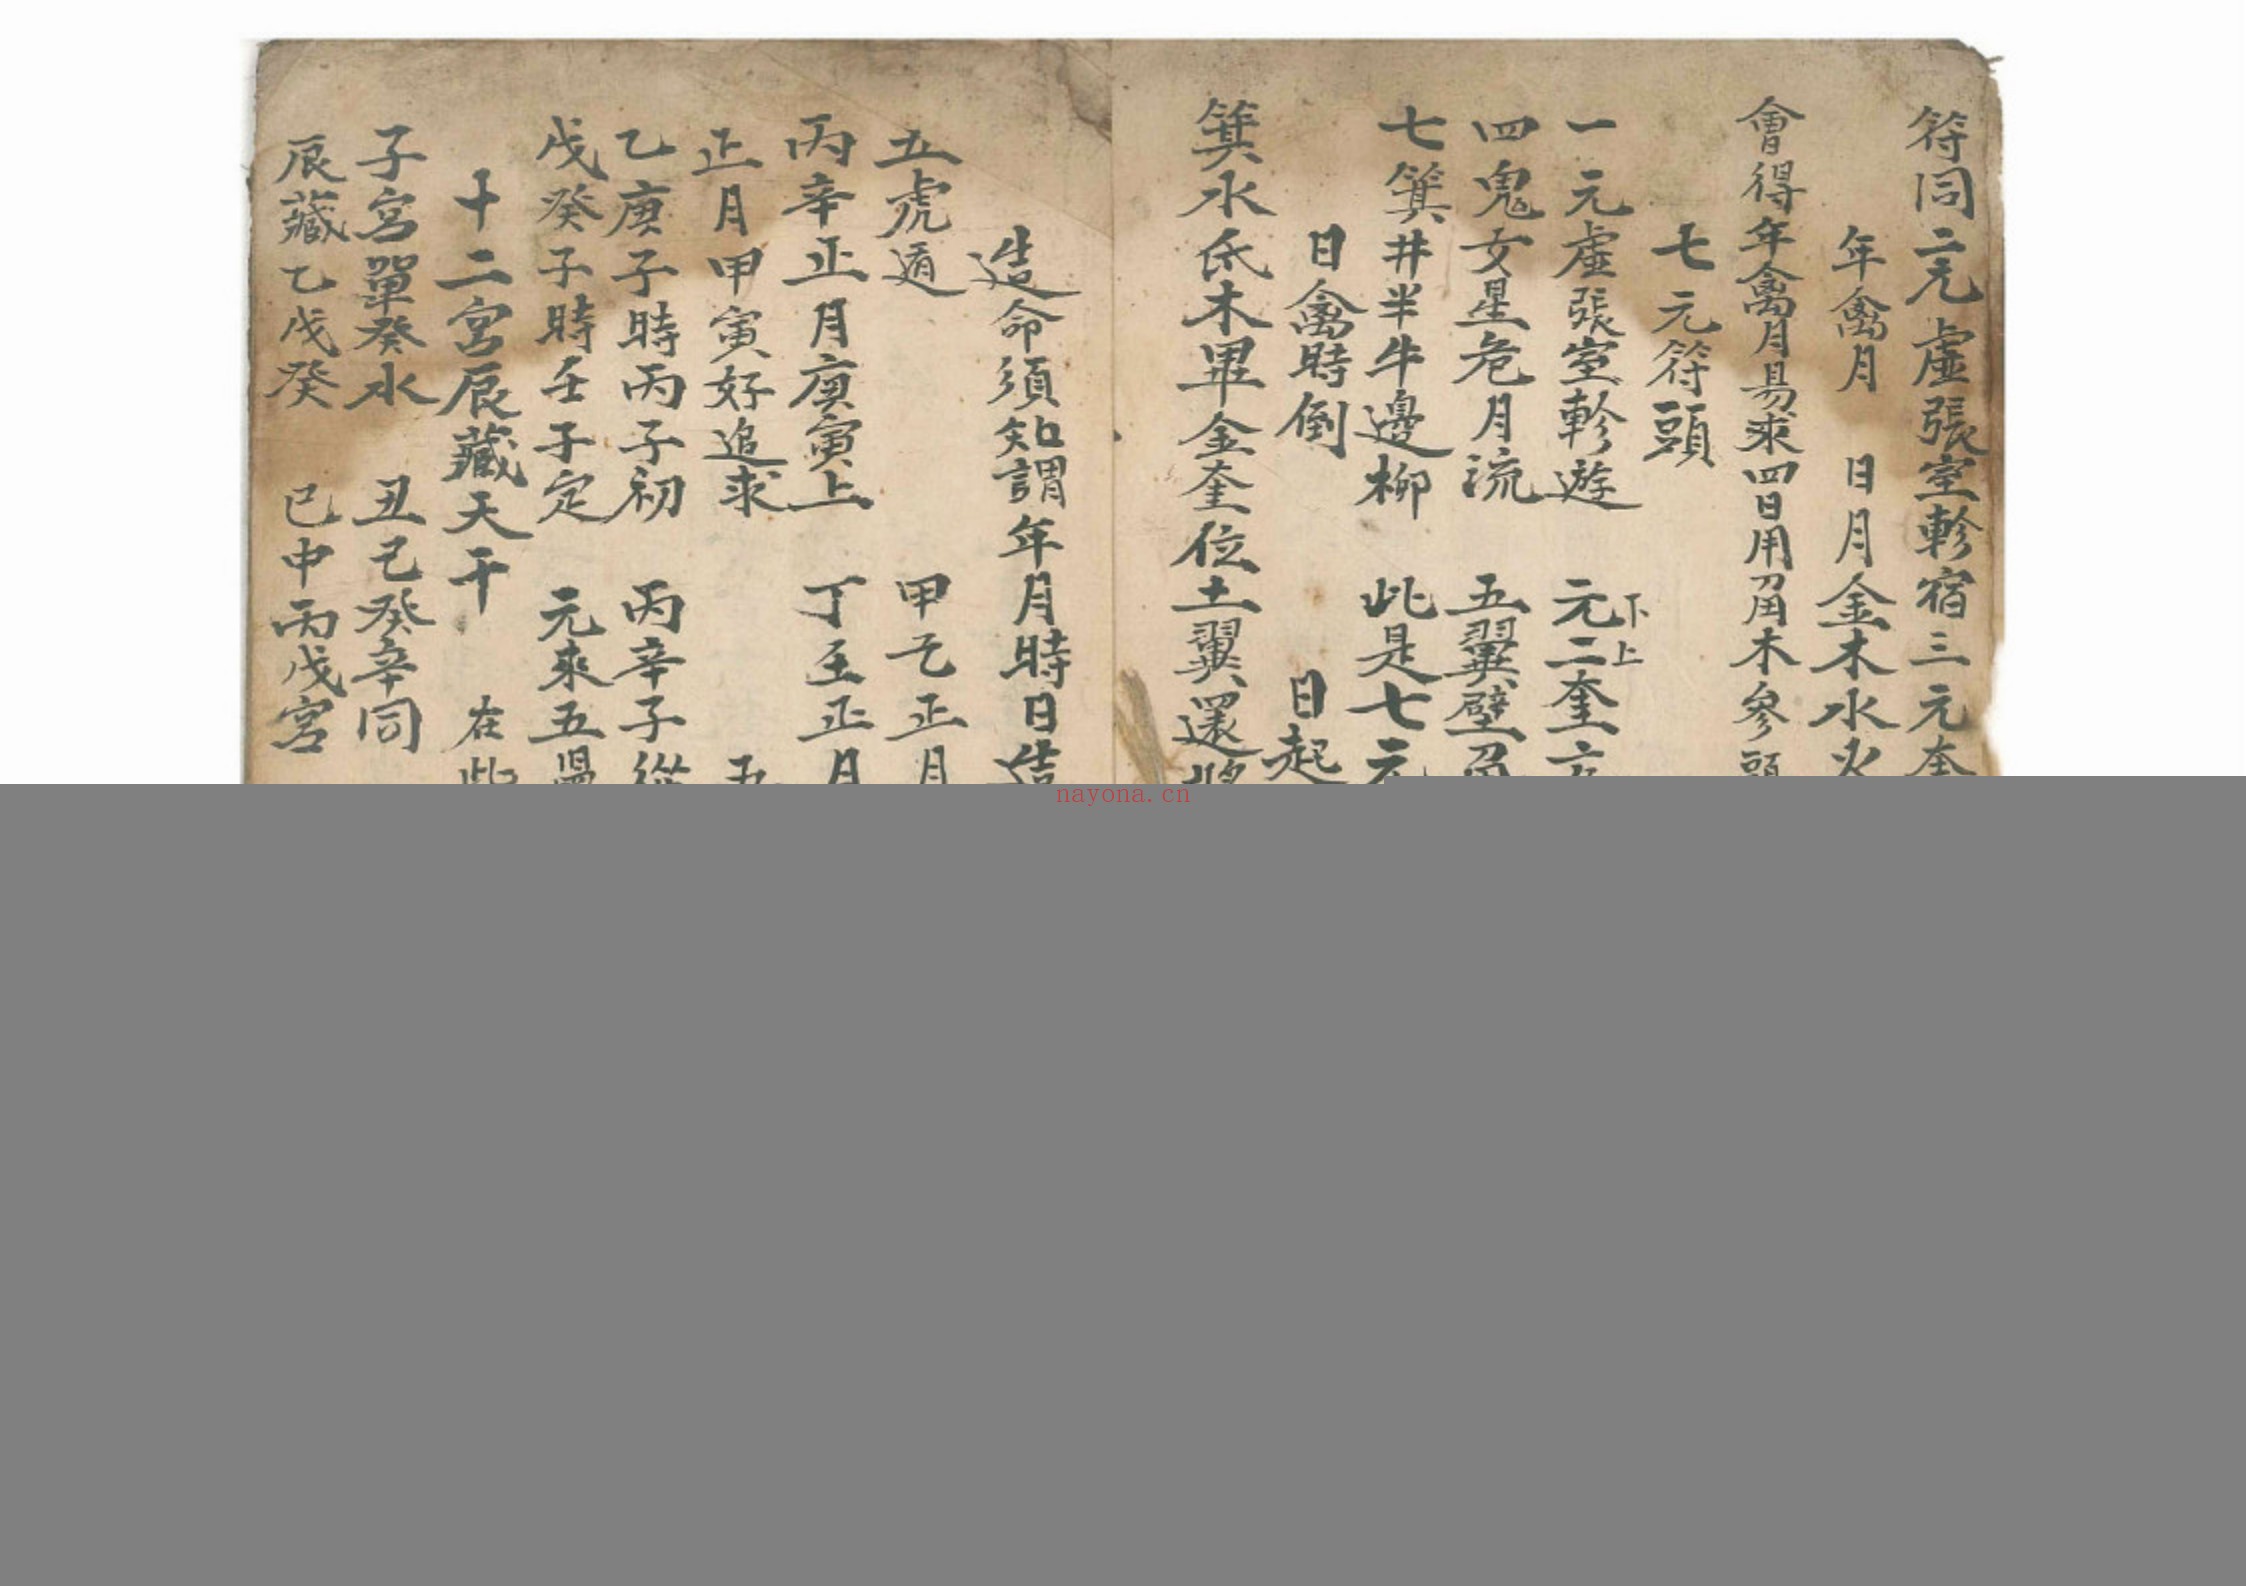 符同二元虛張室軫宿三元奎
年禽月　日月金木水火
會得年禽月易求四日用角木參頭
七元符頭
一元虛張室軫遊　元二奎六
下上
四鬼女星危月流　五翼壁角
七箕井半牛邊柳　此是七元
日禽時倒　日起
箕水氐木畢金奎位土翼還將
造命須知謂年月時日造
五虎遁　甲乞正月
丙辛正月庚寅上　丁壬正月
正月甲寅好追求　五
乙庚子時丙子初　丙辛子從
戊癸子時壬子定　元來五
十二宮辰藏天干　在此
子宮單癸水　丑己癸辛同
辰藏乙戊癸　巳中丙戊宮
nayona.cn